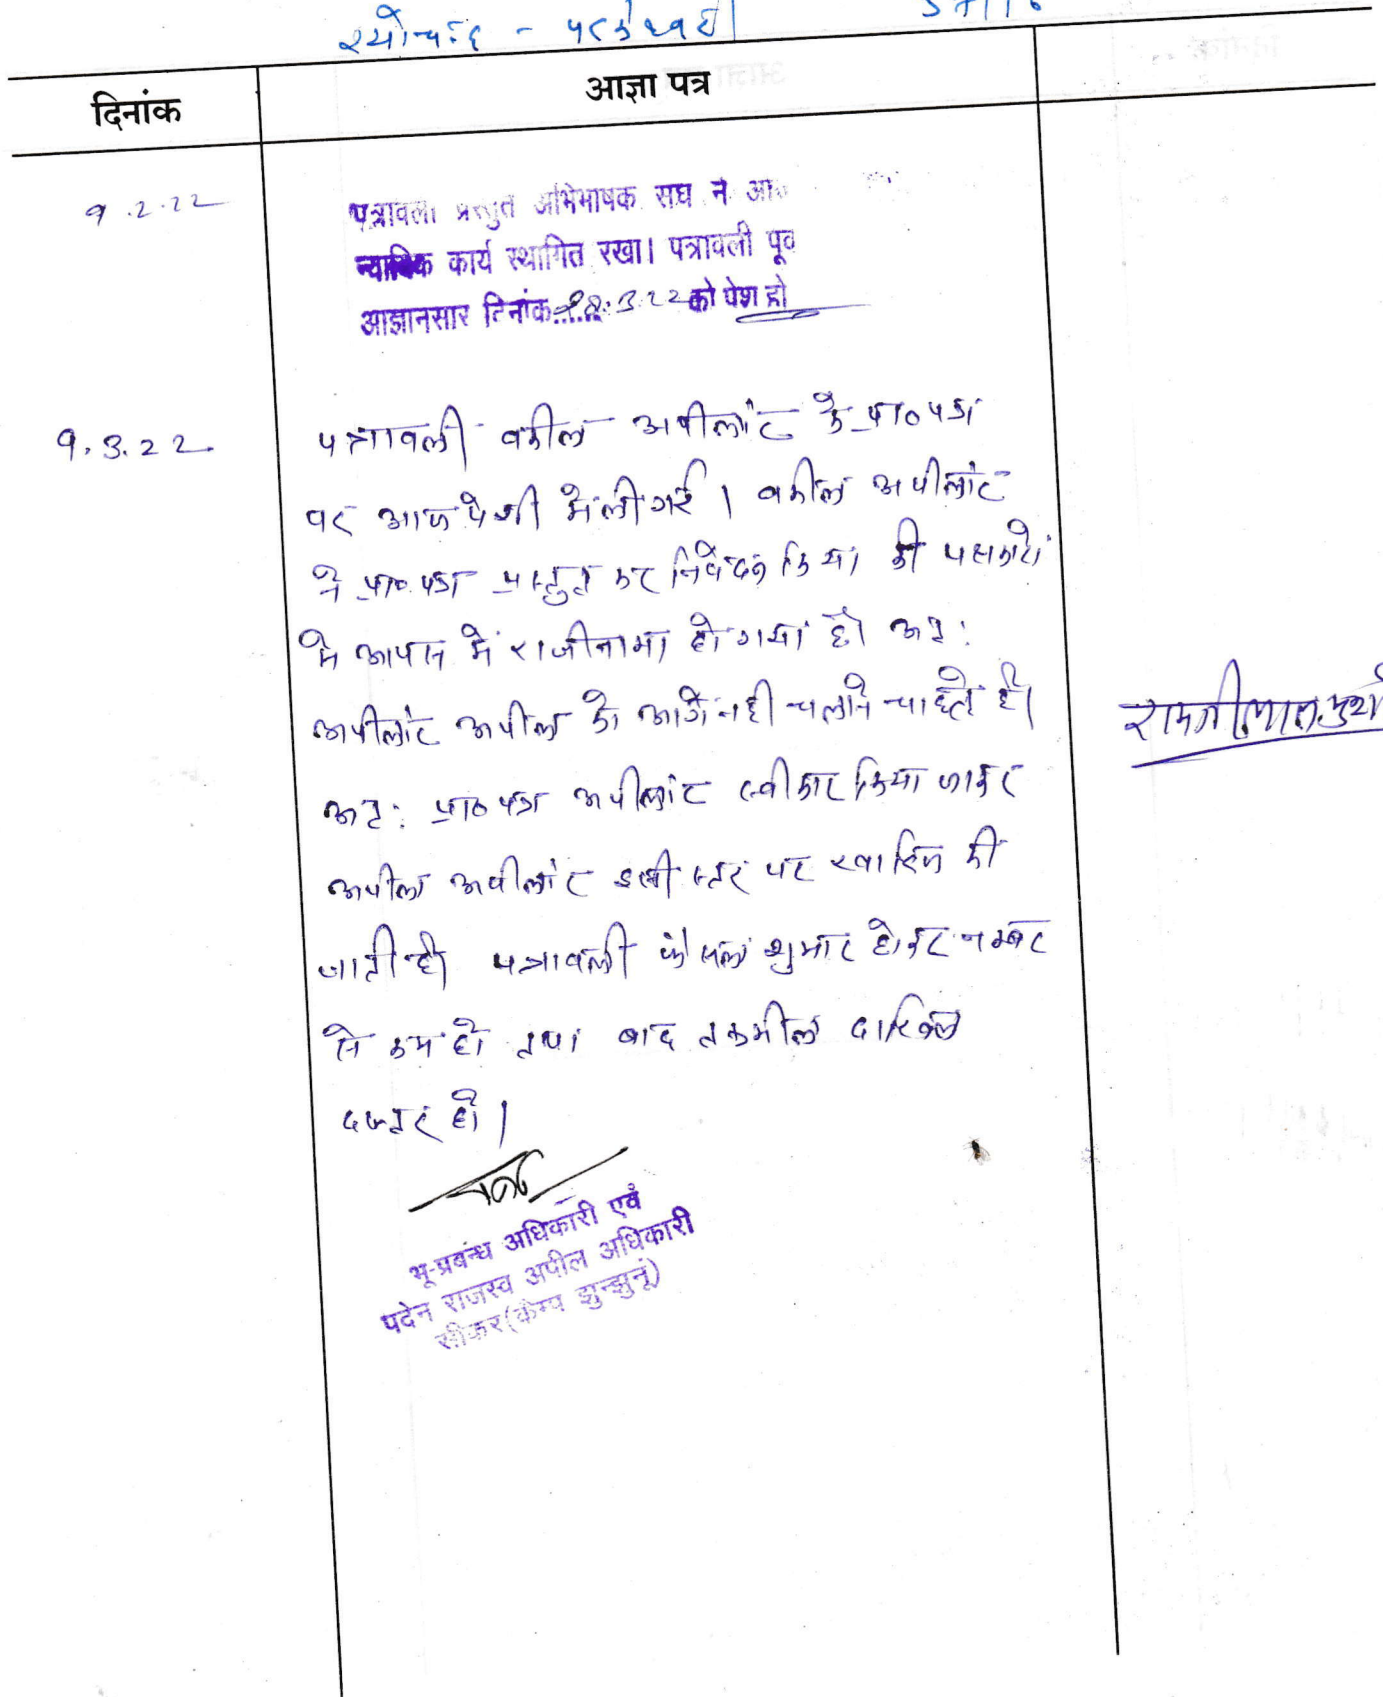 श्योचंद -
दिनांक
आज्ञा पत्र
9.2.22
पत्रावली प्रस्तुत अभिभाषक संघ ने
न्यायिक कार्य स्थागित रखा। पत्रावली पूर्व
आज्ञानसार दिनांक..... 28.3.22 को पेश हो
9.3.22
पत्रावली वकील अपीलांट के प्रा० पत्र
पर आज पेशी मे ली गई। वकील अपीलांट
ने प्रा० पत्र प्रस्तुत कर निवेदन किया की पक्षकारो
मे आपस मे राजीनामा हो गया है। अतः
अपीलांट अपील को आगे नही चलाने चाहते है।
अतः प्रा० पत्र अपीलांट स्वीकार किया जाकर
अपील अपीलांट इसी स्तर पर खारिज की
जाती है। पत्रावली फैसल शुमार होकर नम्बर
से कम हो तथा बाद तकमील दाखिल
दफ्तर हो।
भू-प्रबन्ध अधिकारी एवं
पदेन राजस्व अपील अधिकारी
सीकर(कैम्प झुन्झुनूं)